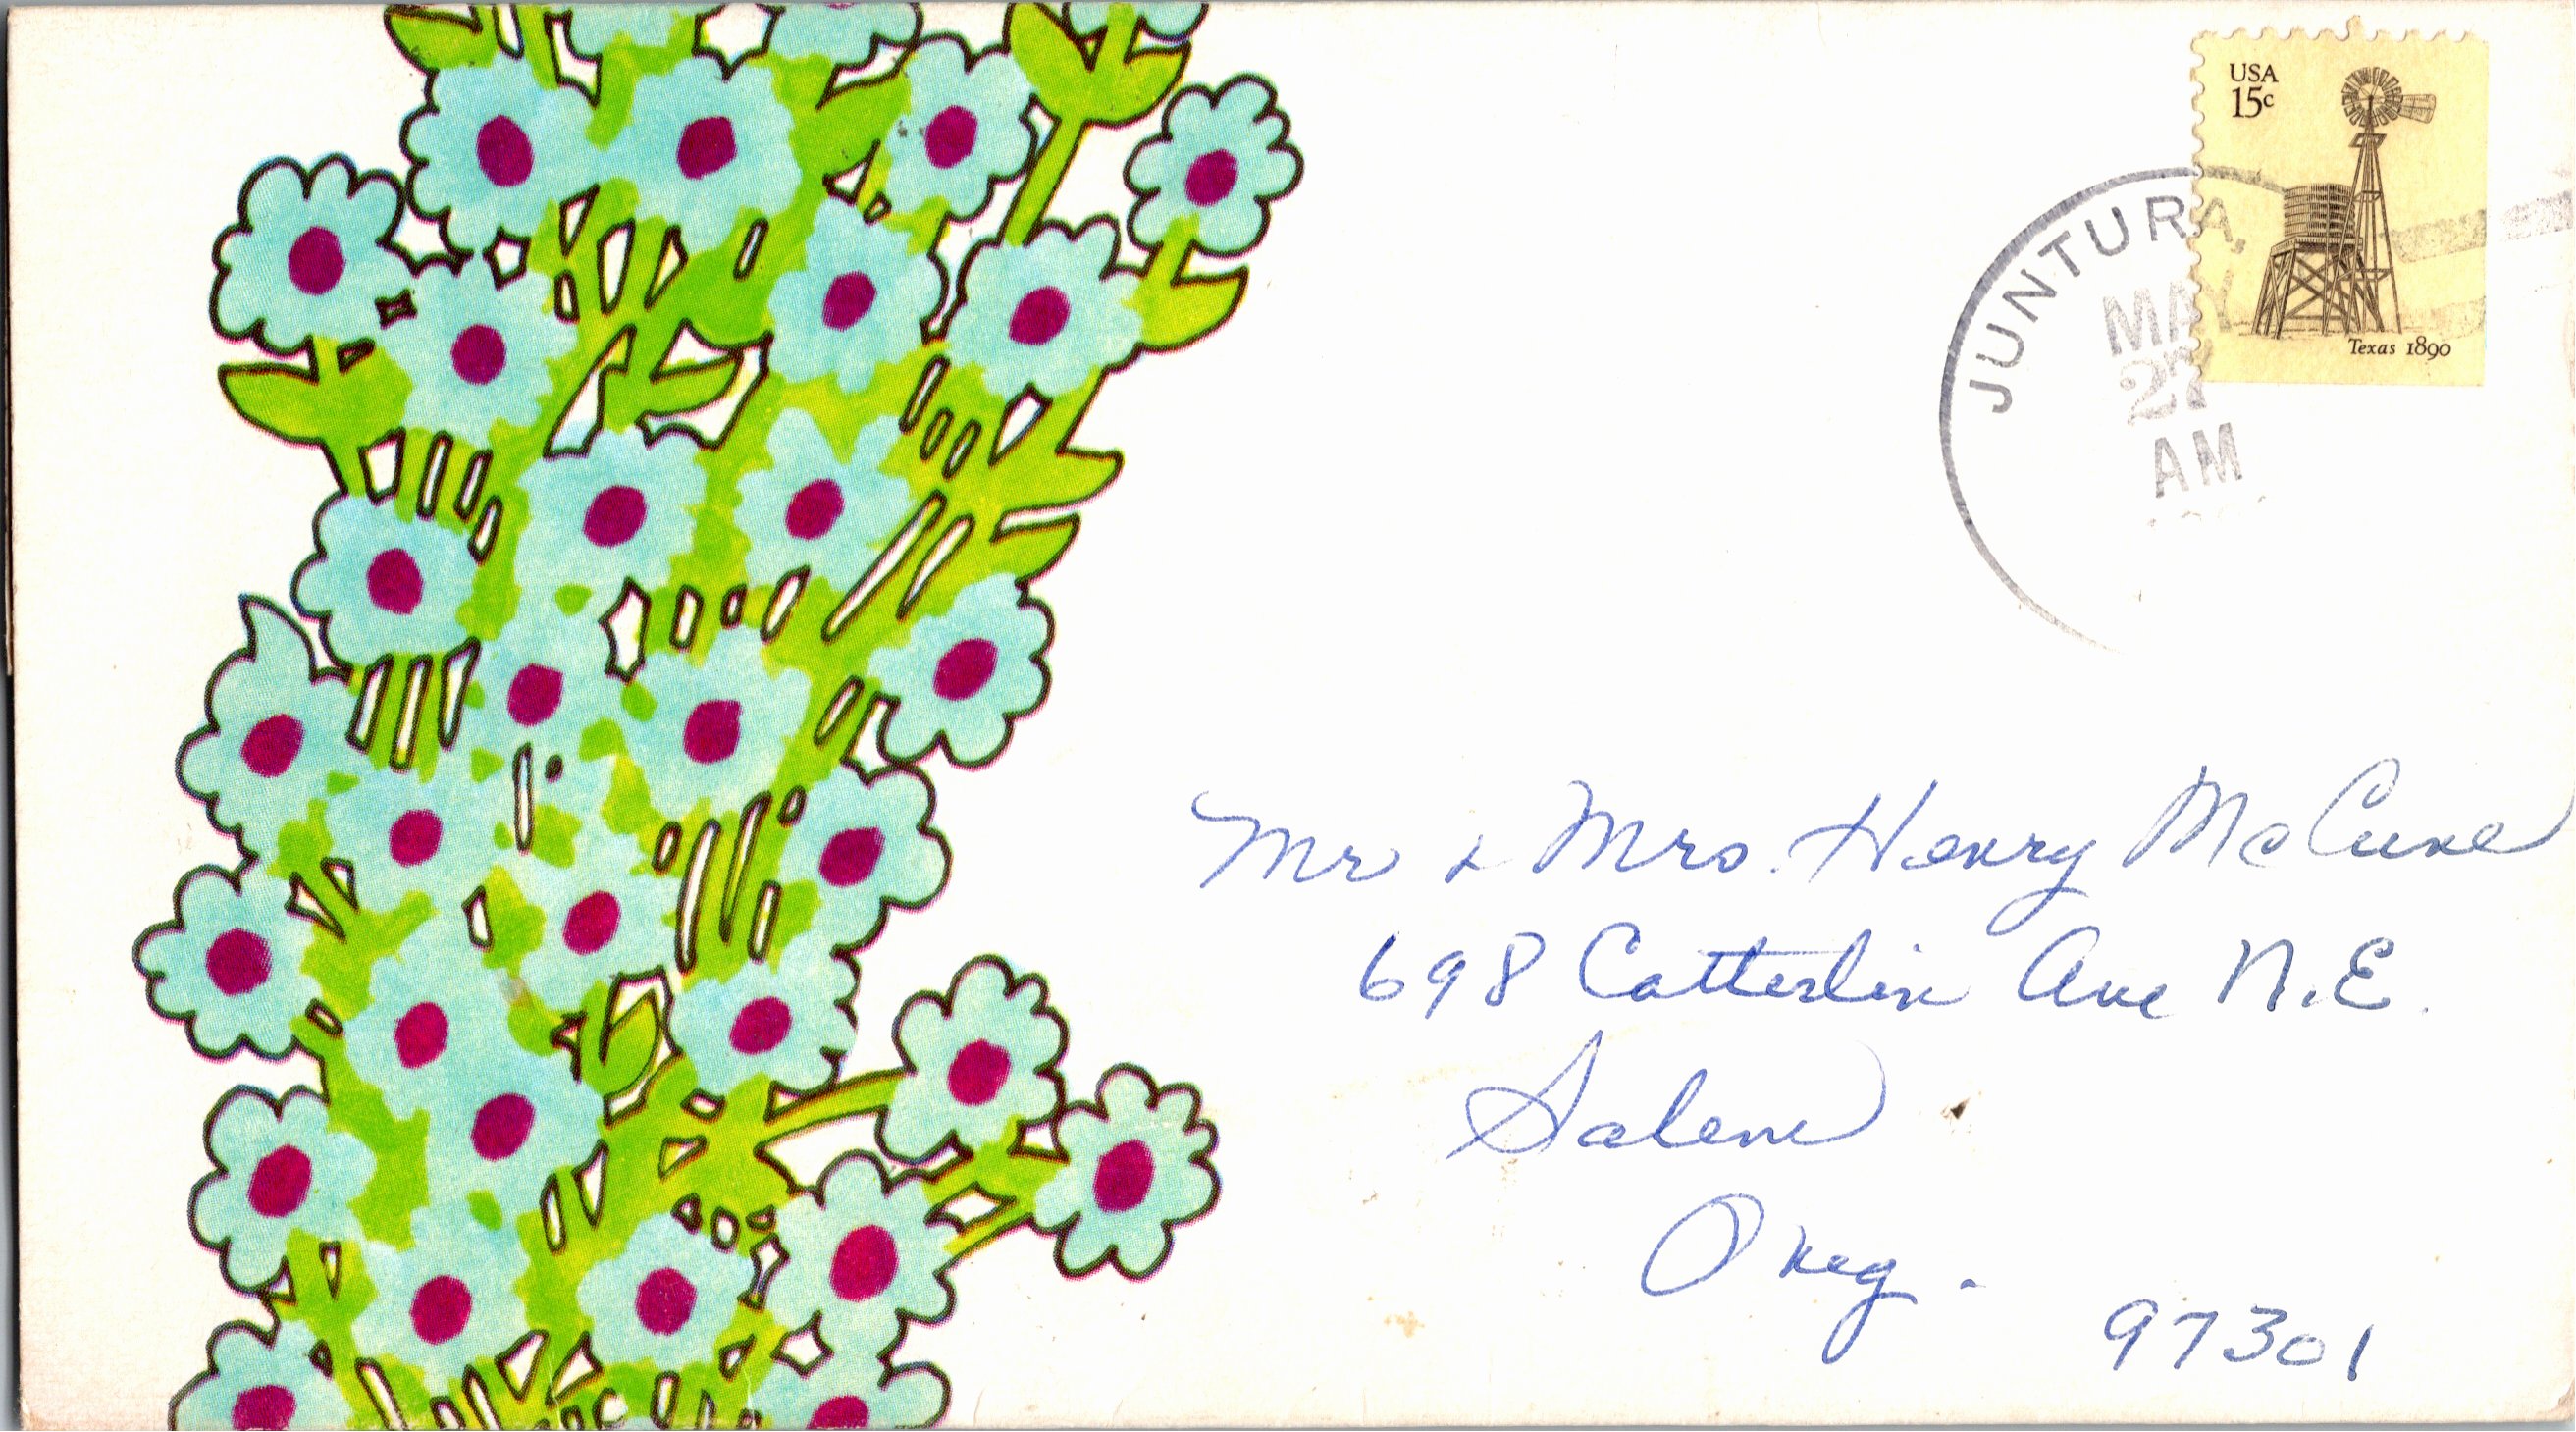 USA
15c
Texas 1890
JUNTURA,
MAY
27
AM
Mr & Mrs. Henry McCune
698 Catterlin Ave N.E.
Salem
Oreg.
97301